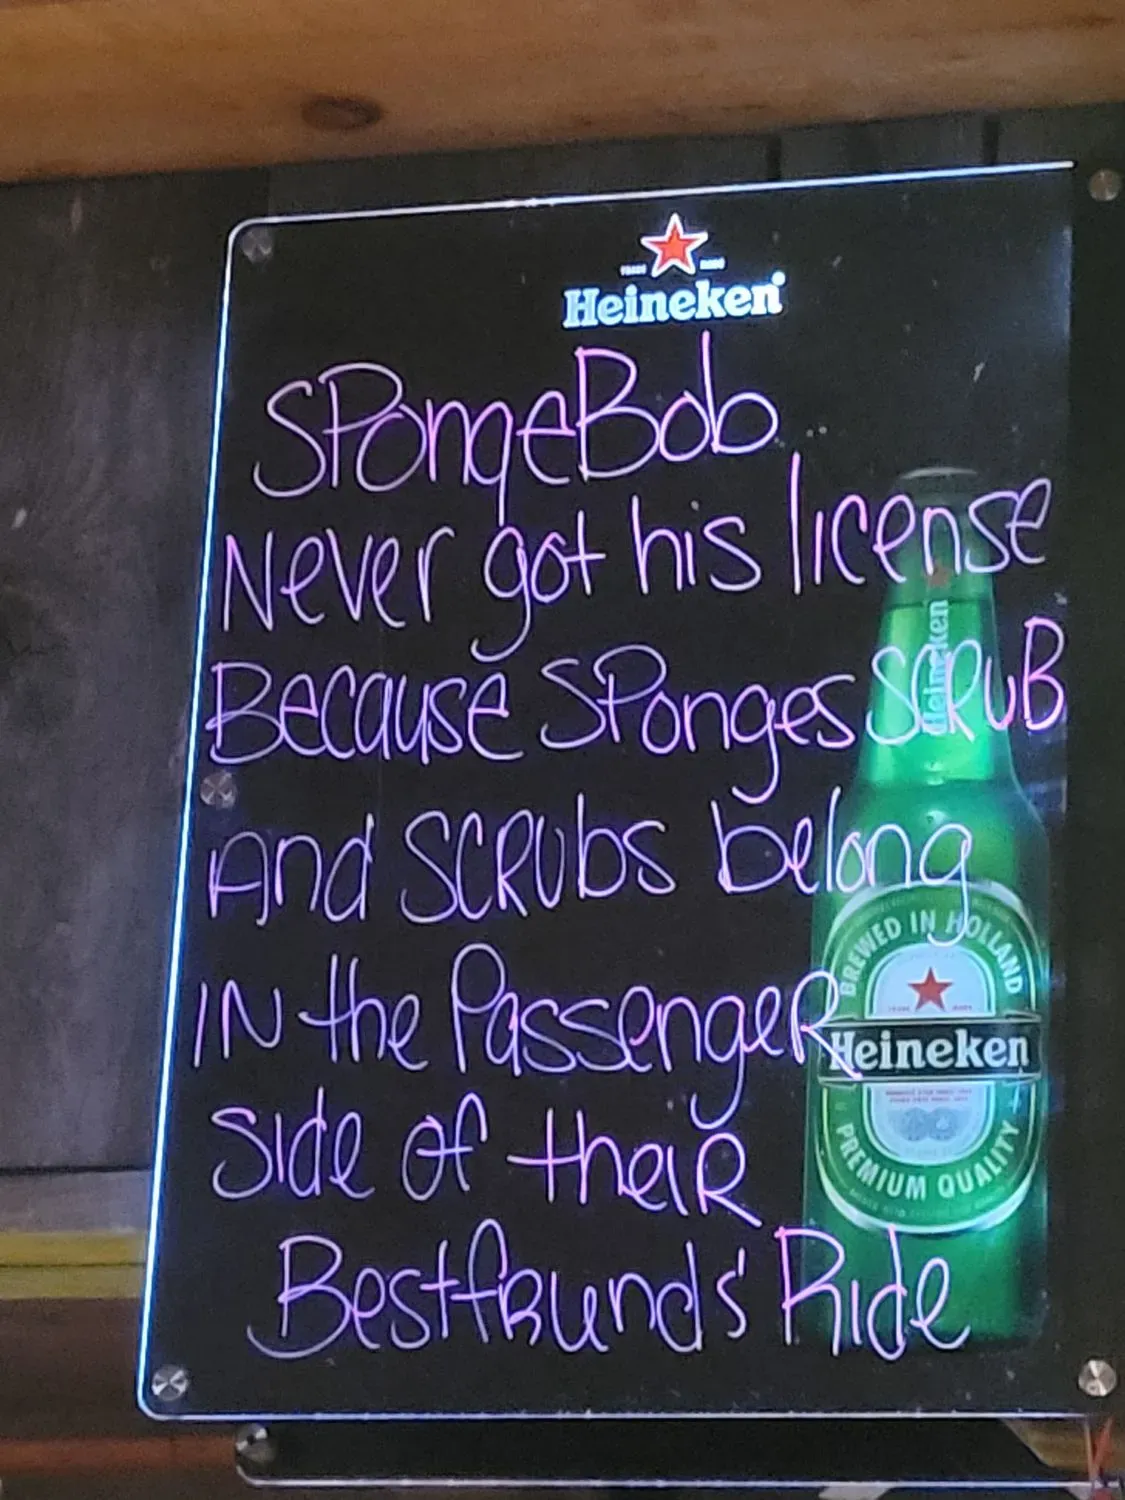 TRADE MARK
Heineken®
SPongeBob
Never got his license
Because SPonges SCRuB
And SCRUbs belong
IN the PassengeR
side of theiR
Bestfriends' Ride
Heineken
BREWED IN HOLLAND
Heineken
PREMIUM QUALITY